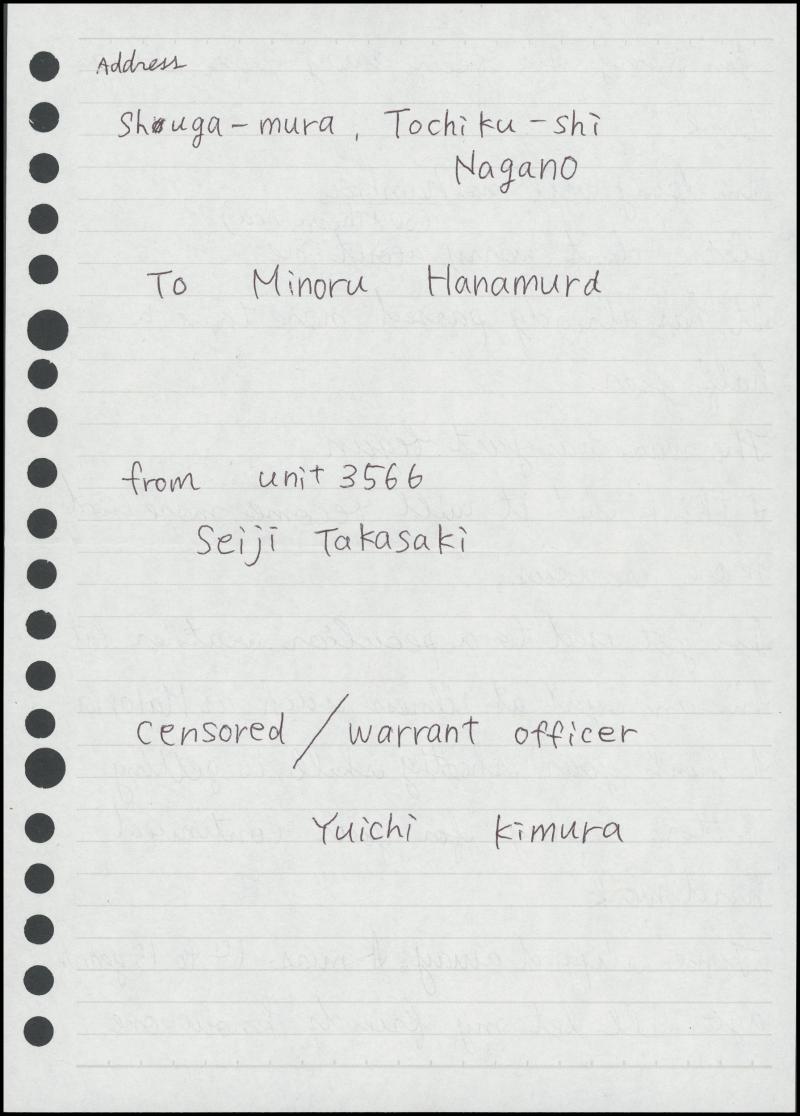 Address
Shouga-mura, Tochiku-shi
Nagano
To Minoru Hanamurd
from unit 3566
Seiji Takasaki
censored / warrant officer
Yuichi Kimura